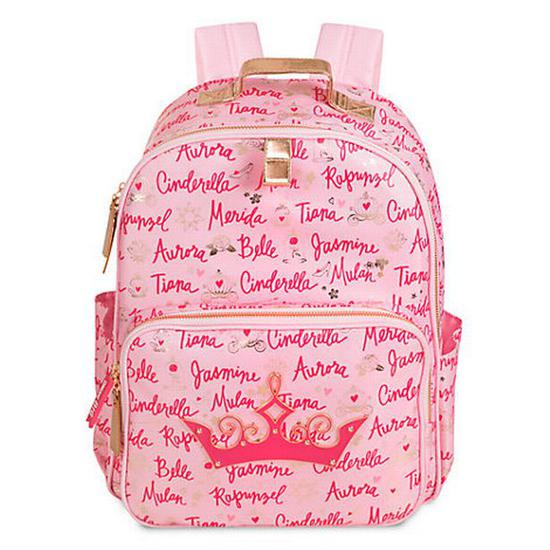 Tiana
Aurora
Aurora
Rapunzel
Cinderella
Mulan
Rapunzel
Merida
Tiana
Cinderella
Aurora
Belle
Jasmine
Tiana
Cinderella
Mulan
Tiana
Cinderella
Belle
Jasmine
Aurora
Cinderella
Mulan
Tiana
Merida
Rapunzel
Merida
Belle
Jasmine
Aurora
Mulan
Rapunzel
Cinderella